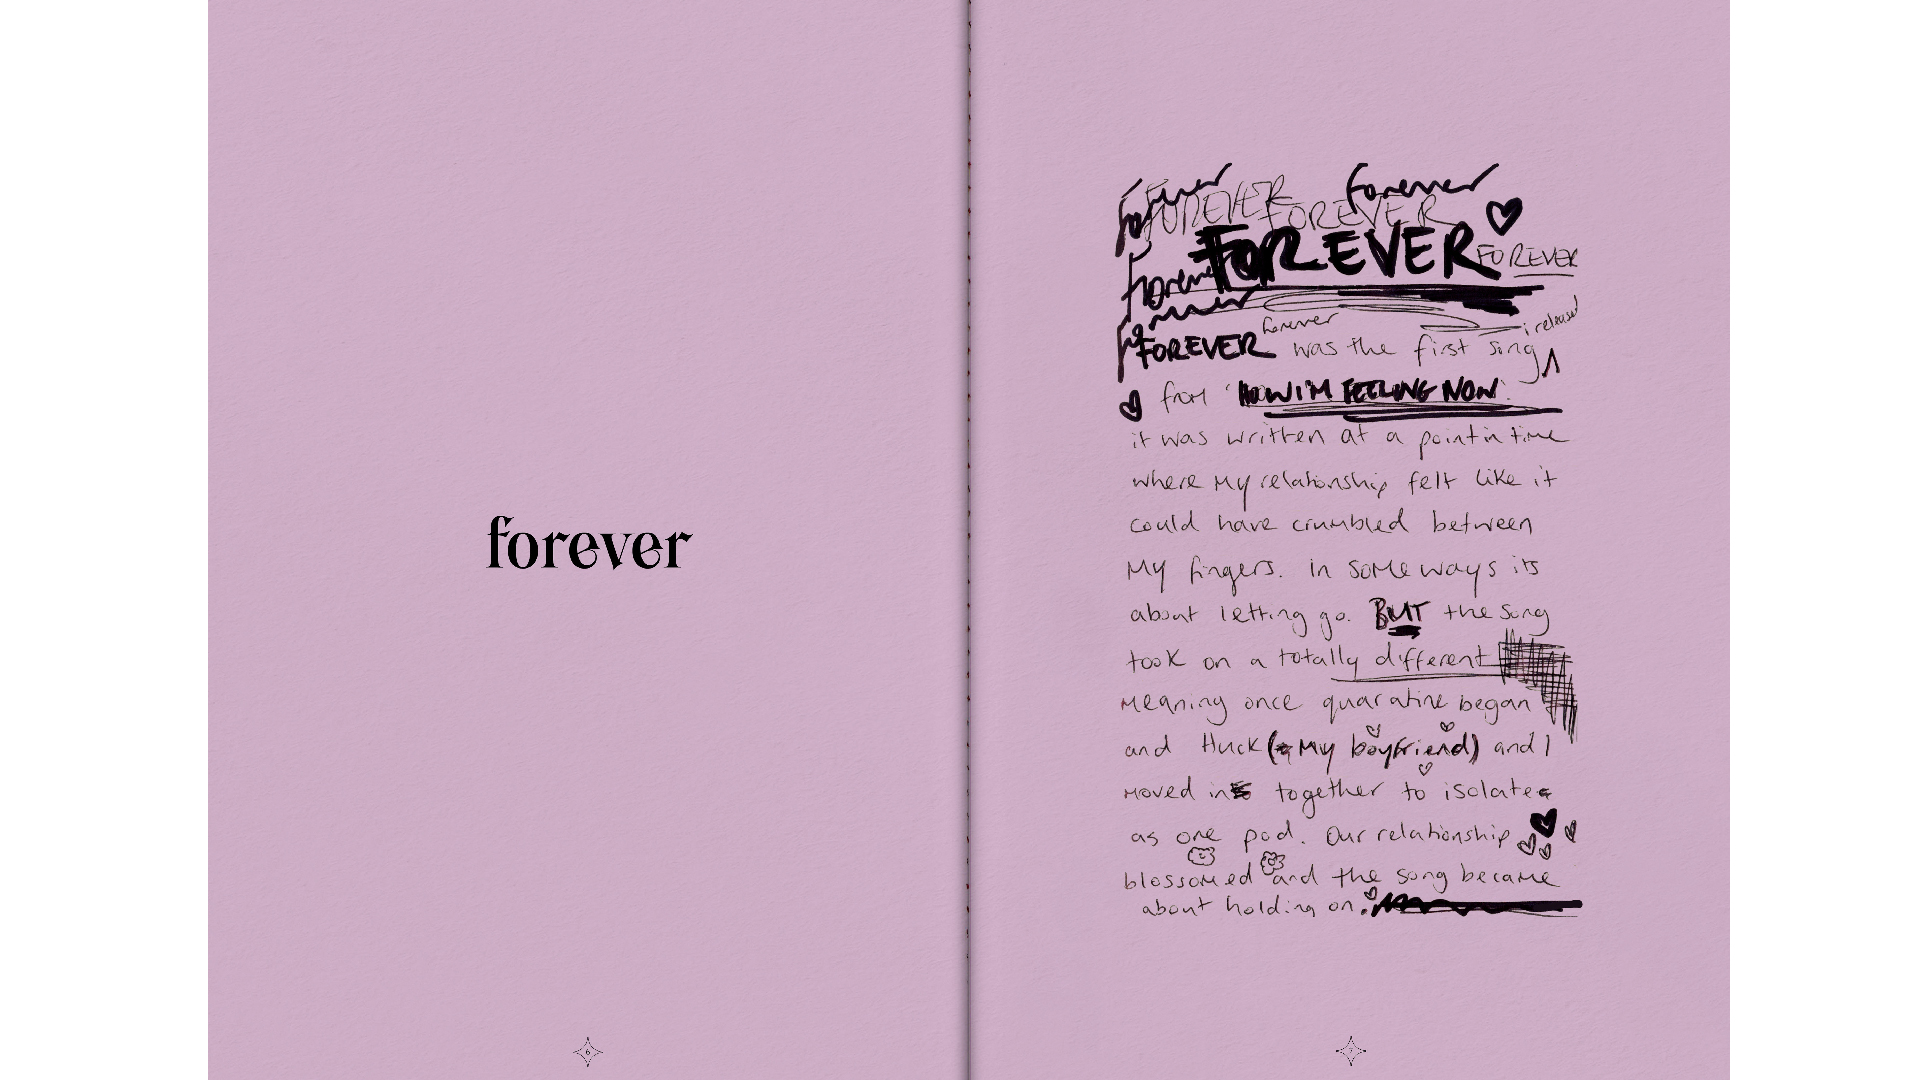 forever
6
forever FOREVER forever
FOREVER
FOREVER FOREVER
forever
forever
forever
FOREVER was the first song i released
from 'HOW I'M FEELING NOW'.
it was written at a point in time
where my relationship felt like it
could have crumbled between
my fingers. in some ways its
about letting go. BUT the song
took on a totally different
meaning once quaratine began
and Huck (my boyfriend) and I
moved in together to isolate
as one pod. Our relationship
blossomed and the song became
about holding on.
7